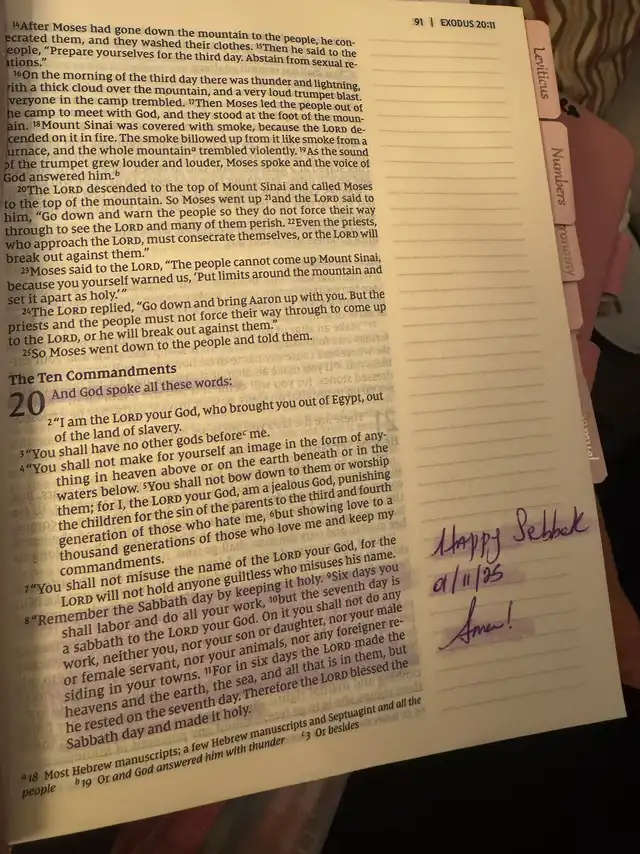 91 | EXODUS 20:11
¹⁴After Moses had gone down the mountain to the people, he con-
ecrated them, and they washed their clothes. ¹⁵Then he said to the
eople, “Prepare yourselves for the third day. Abstain from sexual re-
tions.”
¹⁶On the morning of the third day there was thunder and lightning,
ith a thick cloud over the mountain, and a very loud trumpet blast.
veryone in the camp trembled. ¹⁷Then Moses led the people out of
he camp to meet with God, and they stood at the foot of the moun-
ain. ¹⁸Mount Sinai was covered with smoke, because the LORD de-
cended on it in fire. The smoke billowed up from it like smoke from a
urnace, and the whole mountainᵃ trembled violently. ¹⁹As the sound
of the trumpet grew louder and louder, Moses spoke and the voice of
God answered him.ᵇ
²⁰The LORD descended to the top of Mount Sinai and called Moses
to the top of the mountain. So Moses went up ²¹and the LORD said to
him, “Go down and warn the people so they do not force their way
through to see the LORD and many of them perish. ²²Even the priests,
who approach the LORD, must consecrate themselves, or the LORD will
break out against them.”
²³Moses said to the LORD, “The people cannot come up Mount Sinai,
because you yourself warned us, ‘Put limits around the mountain and
set it apart as holy.’”
²⁴The LORD replied, “Go down and bring Aaron up with you. But the
priests and the people must not force their way through to come up
to the LORD, or he will break out against them.”
²⁵So Moses went down to the people and told them.
The Ten Commandments
20 And God spoke all these words:
²“I am the LORD your God, who brought you out of Egypt, out
of the land of slavery.
³“You shall have no other gods beforeᶜ me.
⁴“You shall not make for yourself an image in the form of any-
thing in heaven above or on the earth beneath or in the
waters below. ⁵You shall not bow down to them or worship
them; for I, the LORD your God, am a jealous God, punishing
the children for the sin of the parents to the third and fourth
generation of those who hate me, ⁶but showing love to a
thousand generations of those who love me and keep my
commandments.
⁷“You shall not misuse the name of the LORD your God, for the
LORD will not hold anyone guiltless who misuses his name.
⁸“Remember the Sabbath day by keeping it holy. ⁹Six days you
shall labor and do all your work, ¹⁰but the seventh day is
a sabbath to the LORD your God. On it you shall not do any
work, neither you, nor your son or daughter, nor your male
or female servant, nor your animals, nor any foreigner re-
siding in your towns. ¹¹For in six days the LORD made the
heavens and the earth, the sea, and all that is in them, but
he rested on the seventh day. Therefore the LORD blessed the
Sabbath day and made it holy.
ᵃ18 Most Hebrew manuscripts; a few Hebrew manuscripts and Septuagint and all the
people ᵇ19 Or and God answered him with thunder ᶜ3 Or besides
Happy Sebbak
01/11/25
Amen!
Leviticus
Numbers